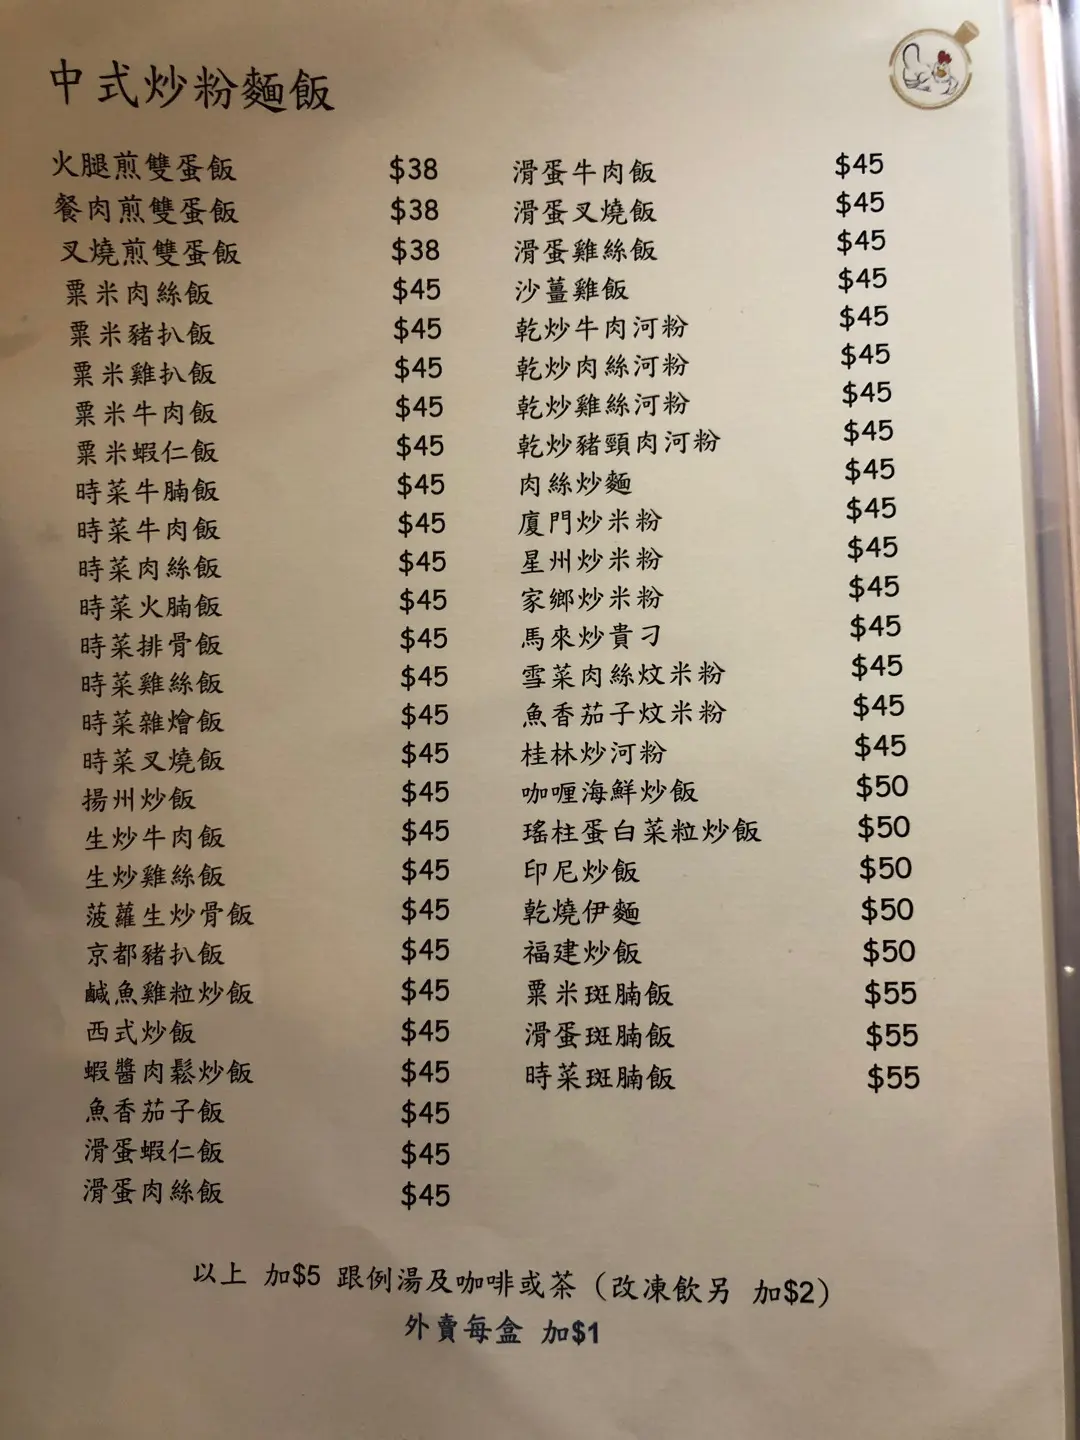 中式炒粉麵飯
火腿煎雙蛋飯 $38
餐肉煎雙蛋飯 $38
叉燒煎雙蛋飯 $38
粟米肉絲飯 $45
粟米豬扒飯 $45
粟米雞扒飯 $45
粟米牛肉飯 $45
粟米蝦仁飯 $45
時菜牛腩飯 $45
時菜牛肉飯 $45
時菜肉絲飯 $45
時菜火腩飯 $45
時菜排骨飯 $45
時菜雞絲飯 $45
時菜雜燴飯 $45
時菜叉燒飯 $45
揚州炒飯 $45
生炒牛肉飯 $45
生炒雞絲飯 $45
菠蘿生炒骨飯 $45
京都豬扒飯 $45
鹹魚雞粒炒飯 $45
西式炒飯 $45
蝦醬肉鬆炒飯 $45
魚香茄子飯 $45
滑蛋蝦仁飯 $45
滑蛋肉絲飯 $45
滑蛋牛肉飯 $45
滑蛋叉燒飯 $45
滑蛋雞絲飯 $45
沙薑雞飯 $45
乾炒牛肉河粉 $45
乾炒肉絲河粉 $45
乾炒雞絲河粉 $45
乾炒豬頸肉河粉 $45
肉絲炒麵 $45
廈門炒米粉 $45
星州炒米粉 $45
家鄉炒米粉 $45
馬來炒貴刁 $45
雪菜肉絲炆米粉 $45
魚香茄子炆米粉 $45
桂林炒河粉 $45
咖喱海鮮炒飯 $50
瑤柱蛋白菜粒炒飯 $50
印尼炒飯 $50
乾燒伊麵 $50
福建炒飯 $50
粟米斑腩飯 $55
滑蛋斑腩飯 $55
時菜斑腩飯 $55
以上 加$5 跟例湯及咖啡或茶（改凍飲另 加$2）
外賣每盒 加$1